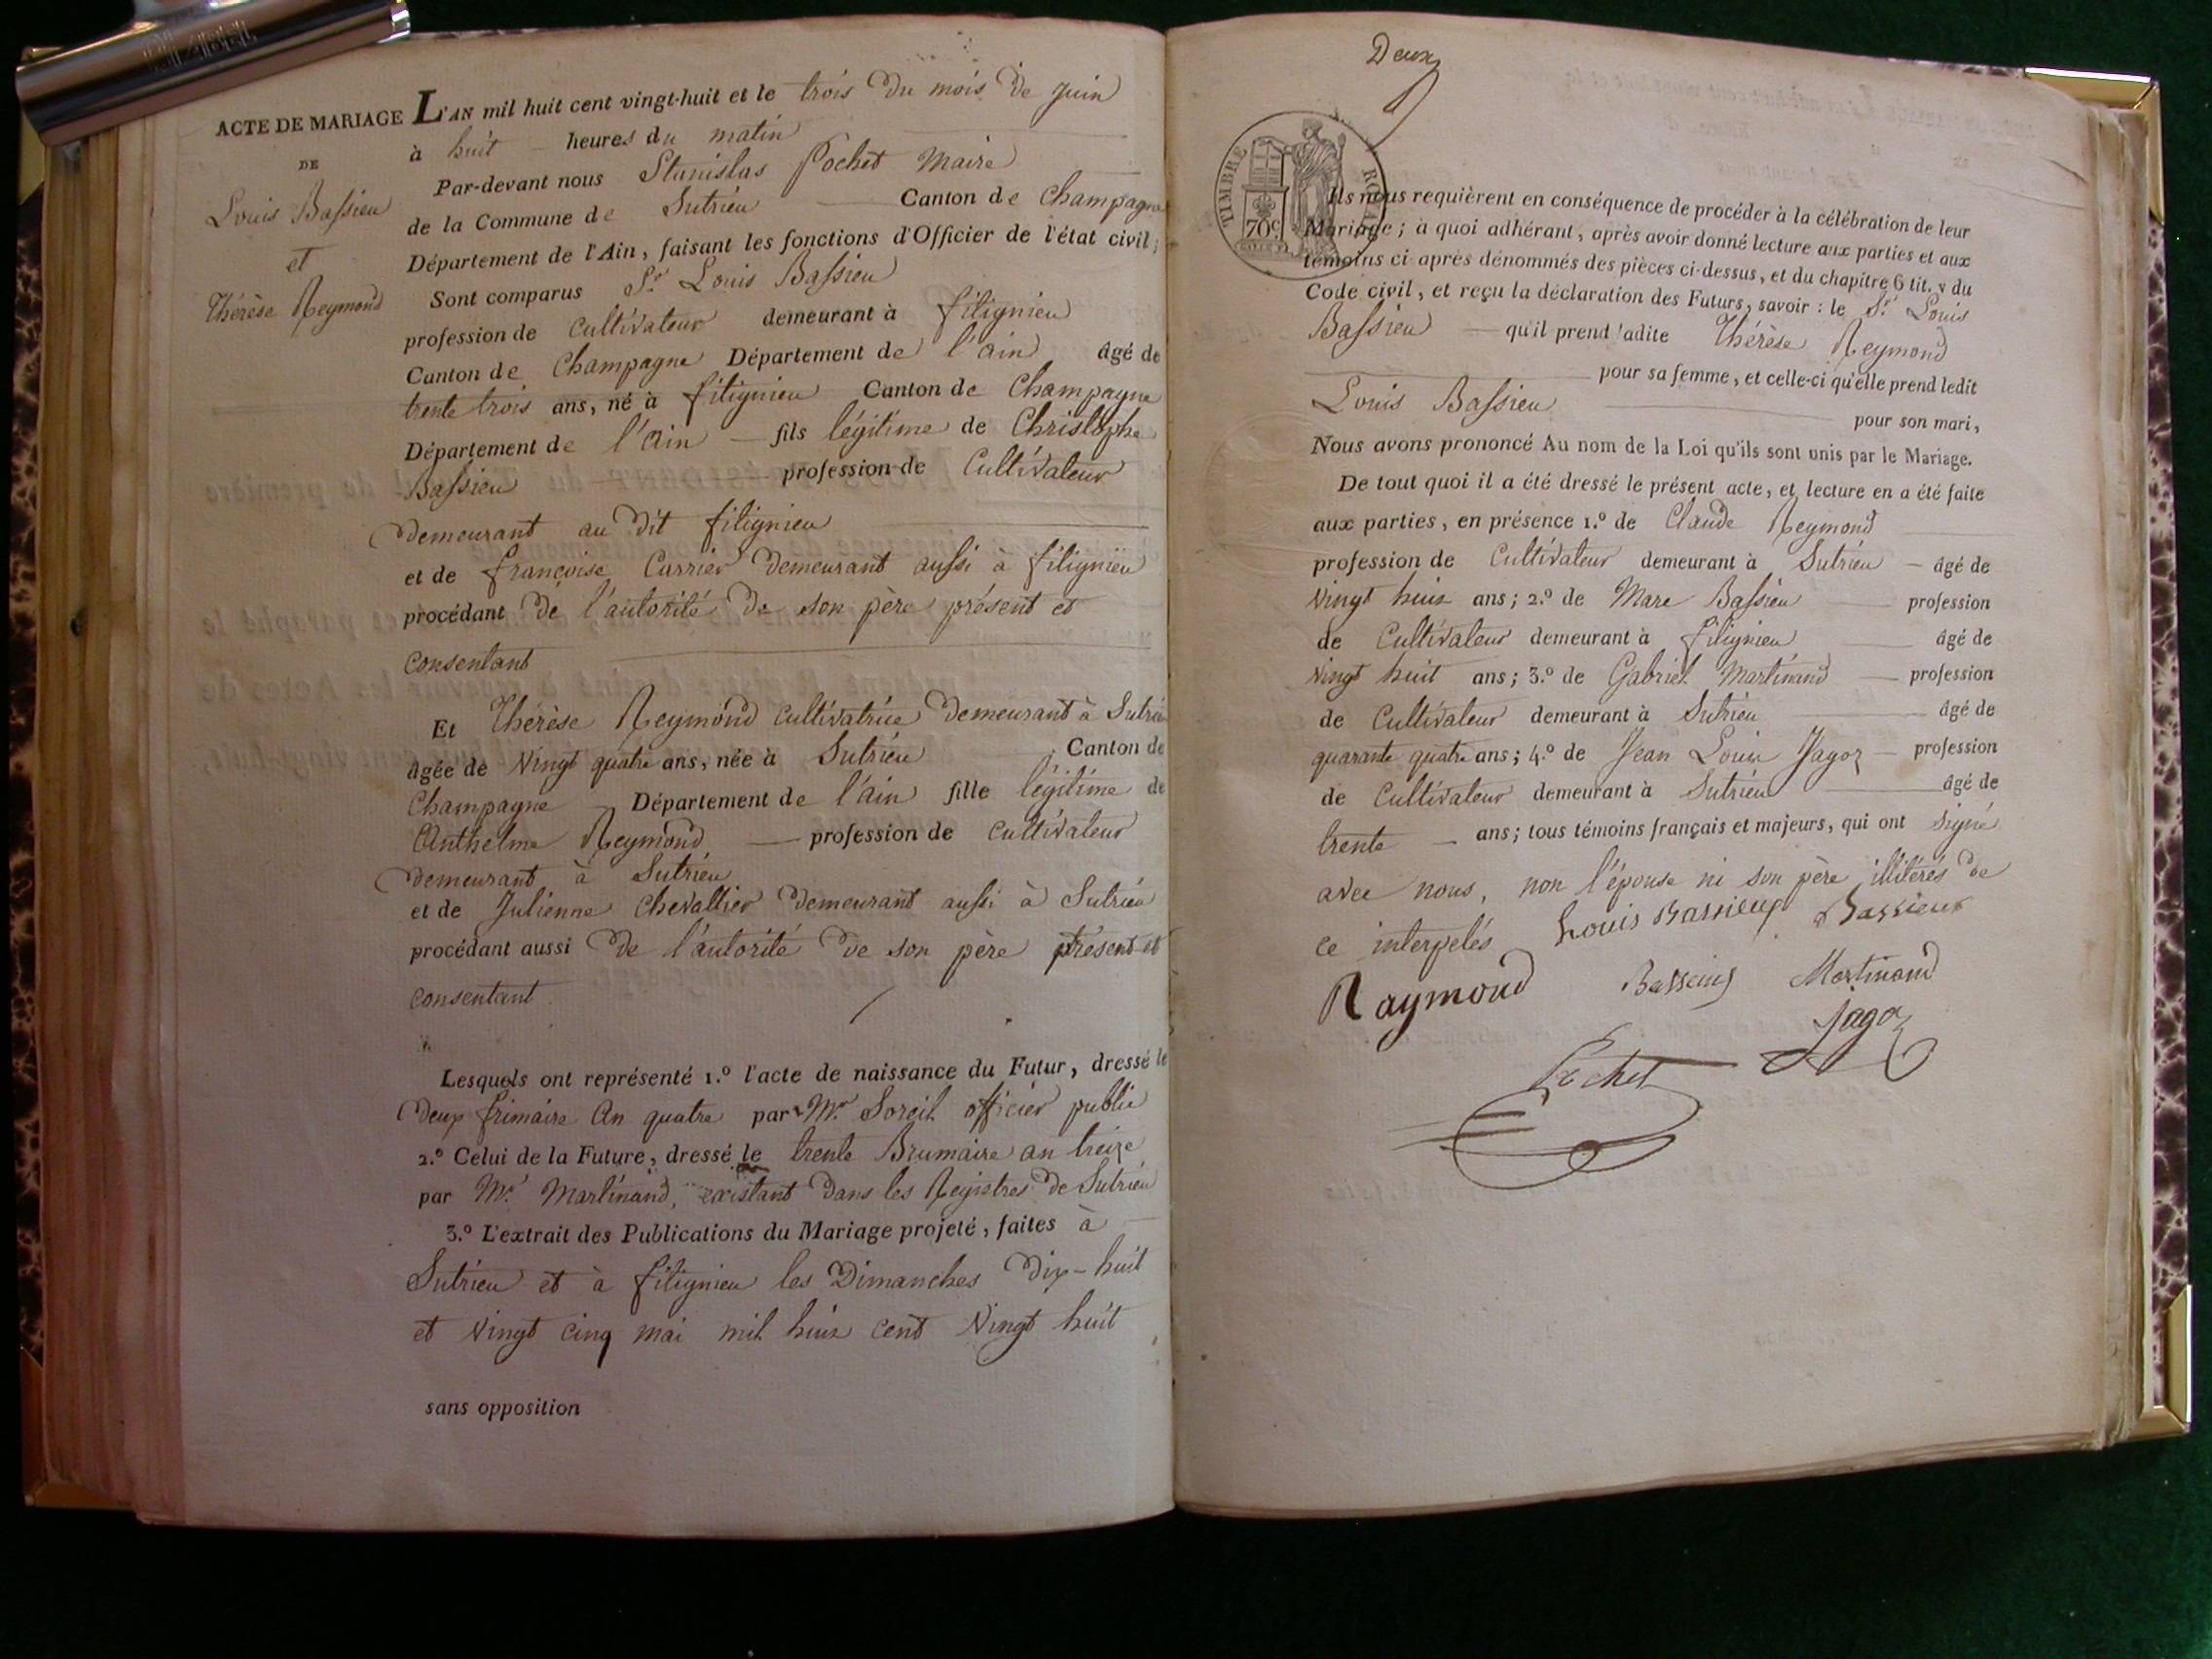 ACTE DE MARIAGE
DE
Louis Bassieu
et
Thérèse Reymond
L'AN mil huit cent vingt-huit et le trois du mois de juin
à huit heures du matin
Par-devant nous Stanislas Pochet Maire
de la Commune de Sutrieu Canton de Champagne
Département de l'Ain, faisant les fonctions d'Officier de l'état civil;
Sont comparus Sr. Louis Bassieu
profession de Cultivateur demeurant à fitignieu
Canton de Champagne Département de l'ain âgé de
trente trois ans, né à fitignieu Canton de Champagne
Département de l'ain fils légitime de Christophe
Bassieu profession de Cultivateur
demeurant au dit fitignieu
et de françoise Carrier demeurant aussi à fitignieu
procédant de l'autorité de son père présent et
consentant
Et Thérèse Reymond cultivatrice demeurant à Sutrieu
âgée de vingt quatre ans, née à Sutrieu Canton de
Champagne Département de l'ain fille légitime de
Anthelme Reymond profession de cultivateur
demeurant à Sutrieu
et de Julienne Chevallier demeurant aussi à Sutrieu
procédant aussi de l'autorité de son père présent et
consentant
Lesquels ont représenté 1.º l'acte de naissance du Futur, dressé le
deux frimaire an quatre par Mr. Soreil officier public
2.º Celui de la Future, dressé le trente Brumaire an treize
par Mr. Martinand, existant dans les Registres de Sutrieu
3.º L'extrait des Publications du Mariage projeté, faites à
Sutrieu et à fitignieu les Dimanches dix-huit
et vingt cinq mai mil huit cent vingt huit
sans opposition
Deux
TIMBRE ROYAL
70c
Ils nous requièrent en conséquence de procéder à la célébration de leur
Mariage; à quoi adhérant, après avoir donné lecture aux parties et aux
témoins ci-après dénommés des pièces ci-dessus, et du chapitre 6 tit. v du
Code civil, et reçu la déclaration des Futurs, savoir: le Sr. Louis
Bassieu qu'il prend ladite Thérèse Reymond
pour sa femme, et celle-ci qu'elle prend ledit
Louis Bassieu pour son mari,
Nous avons prononcé Au nom de la Loi qu'ils sont unis par le Mariage.
De tout quoi il a été dressé le présent acte, et lecture en a été faite
aux parties, en présence 1.º de Claude Reymond
profession de Cultivateur demeurant à Sutrieu âgé de
vingt huit ans; 2.º de Marc Bassieu profession
de Cultivateur demeurant à fitignieu âgé de
vingt huit ans; 3.º de Gabriel Martinand profession
de Cultivateur demeurant à Sutrieu âgé de
quarante quatre ans; 4.º de Jean Louis Jagoz profession
de Cultivateur demeurant à Sutrieu âgé de
trente ans; tous témoins français et majeurs, qui ont signé
avec nous, non l'épouse ni son père illitérés de
ce interpelés Louis Bassieux Bassieux
Raymond Bassieux Martinand
Jagoz
Pochet